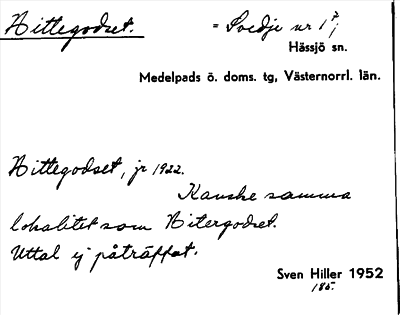 Hittegodset. = Svedje nr 1⁷,
Hässjö sn.
Medelpads ö. doms. tg, Västernorrl. län.
Hittegodset, jr 1922.
Kanske samma
lokalitet som Hitergodset.
Uttal ej påträffat.
Sven Hiller 1952
185.